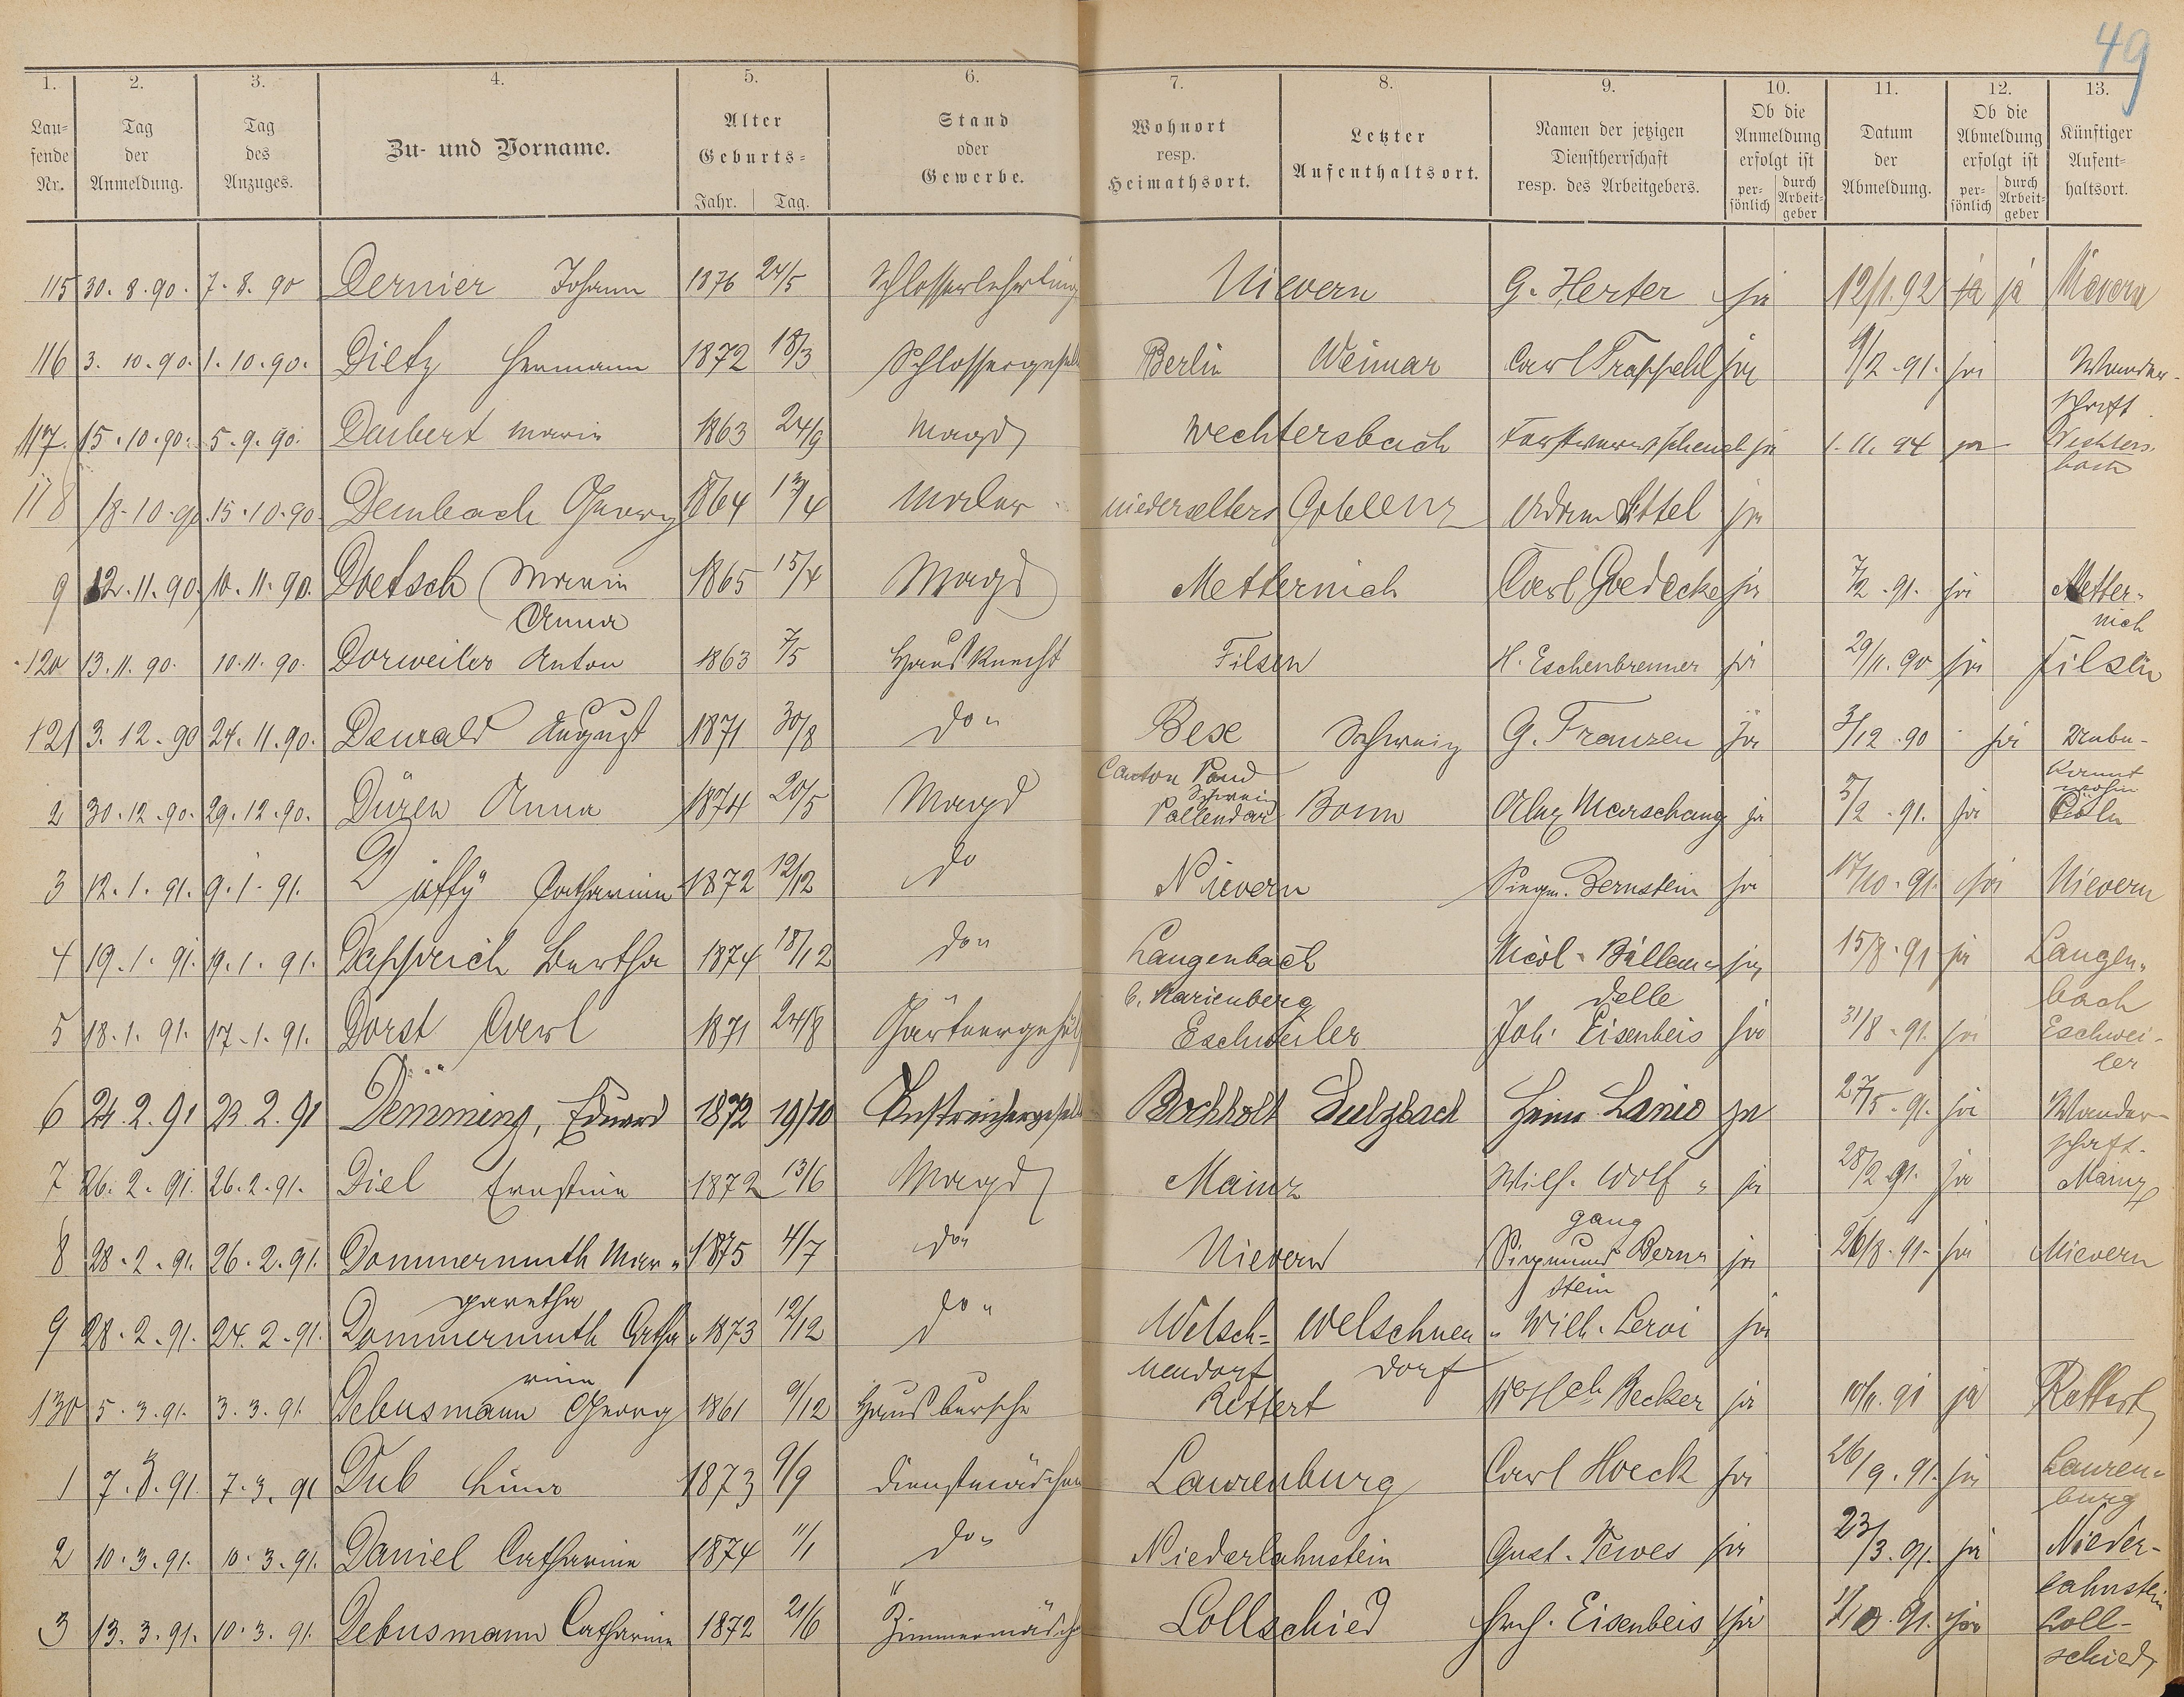 49
1. 2. 3. 4. 5. 6. 7. 8. 9. 10. 11. 12. 13.
Lau=
fende
Nr.
Tag
der
Anmeldung.
Tag
des
Anzuges.
Zu- und Vorname.
Alter
Geburts=
Jahr. Tag.
Stand
oder
Gewerbe.
Wohnort
resp.
Heimathsort.
Letzter
Aufenthaltsort.
Namen der jetzigen
Dienstherrschaft
resp. des Arbeitgebers.
Ob die
Anmeldung
erfolgt ist
per=
sönlich
durch
Arbeit=
geber
Datum
der
Abmeldung.
Ob die
Abmeldung
erfolgt ist
per=
sönlich
durch
Arbeit=
geber
Künftiger
Aufent=
haltsort.
115 30. 8. 90. 7. 8. 90 Dernier Johann 1876 24/5 Schlosserlehrling Nievern G. Herter ja 12/1. 92 ja ja Nievern
116 3. 10. 90. 1. 10. 90. Dietz Hermann 1872 18/3 Schlossergesell Berlin Weimar Carl Trappehl ja 9/2. 91. ja Wander-
schaft.
117. 15. 10. 90. 5. 9. 90. Daubert Marie 1863 24/9 Magd Wechtersbach ja 1. 11. 94 ja Wechters-
bach
118 18. 10. 90 15. 10. 90. Dembach Georg 1864 Maler Niederselters Coblenz Adam Ittel ja
9 12. 11. 90. 10. 11. 90. Doetsch Maria 1865 15/4 Magd Metternich Carl Goedecke ja 7/2. 91. ja Metter-
Anna nich
120 13. 11. 90. 10. 11. 90. Dorweiler Anton 1863 7/5 Hausknecht Filsen H. Eschenbrenner ja 29/11. 90 ja Filsen
121 3. 12. 90 24. 11. 90. Dewald August 1871 30/8 do " Bese Schweiz G. Franzen ja 3/12. 90 ja Unbe-
Canton Schweiz kannt
wohin
2 30. 12. 90. 29. 12. 90. Düren Anna 1874 20/5 Magd Vallendar Bonn Alex Marschang ja 5/2. 91. ja Cöln
3 12. 1. 91. 9. 1. 91. Catharina 1872 12/12 do Nievern Siegm. Bernstein ja 17/10. 91. ja Nievern
4 19. 1. 91. 19. 1. 91. Dapprich Bertha 1874 18/12 do " Langenbach Nicol. Bällem= ja 15/8. 91 ja Langen-
b. Marienberg delle bach
5 18. 1. 91. 17. 1. 91. Dorst Carl 1871 24/8 Gärtnergehülf Eschweiler Joh. Eisenbeis ja 31/8. 91. ja Eschwei-
ler
6 24. 2. 91 23. 2. 91 Demming, Eduard 1872 19/10 Anstreichergesell Bochholt Sulzbach Heinr. Lanio ja 27/5. 91. ja Wander-
schaft.
7 26. 2. 91. 26. 2. 91. Diel Ernstine 1872 13/6 Magd Mainz Wilh. Wolf " ja 28/2 91. ja Mainz
gang
8 28. 2. 91. 26. 2. 91. Dommermuth Mar " 1875 4/7 do " Nievern Siegmund Bern= ja 26/8. 91. ja Nievern
garetha stein
9 28. 2. 91. 24. 2. 91. Dommermuth Catha " 1873 12/12 do " Welsch- Welschnen " Wilh. Leroi ja
rina neudorf dorf
130 5. 3. 91. 3. 3. 91 Debusmann Georg 1861 9/12 Hausbursche Rettert Becker ja 10/11. 91 ja Rettert
1 7. 3. 91. 7. 3. 91 Dub Lina 1873 9/9 Dienstmädchen Laurenburg Carl Hoeck ja 26/9. 91. ja Lauren-
burg
2 10. 3. 91. 10. 3. 91. Daniel Catharina 1874 11/1 do " Niederlahnstein Gust. Tewes ja 23/3. 91. ja Nieder-
lahnstein
3 13. 3. 91. 10. 3. 91. Debusmann Catharina 1872 21/6 Zimmermädch Lollschied Eisenbeis ja ja Loll-
schied